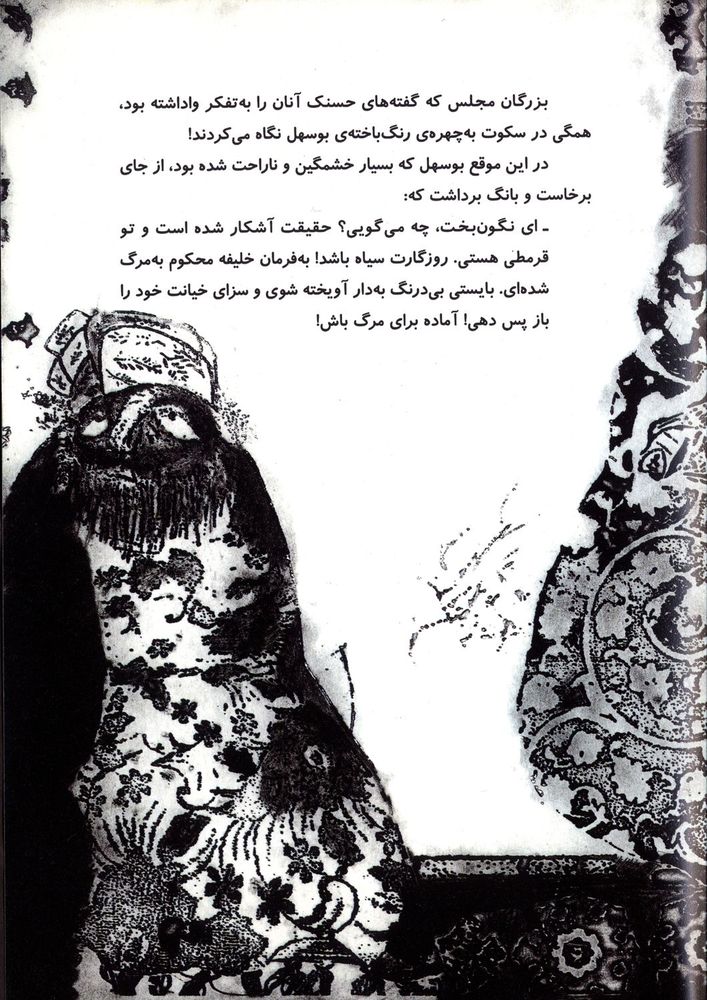 بزرگان مجلس که گفته‌های حسنک آنان را به‌تفکر واداشته بود،
همگی در سکوت به‌چهره‌ی رنگ‌باخته‌ی بوسهل نگاه می‌کردند!
در این موقع بوسهل که بسیار خشمگین و ناراحت شده بود، از جای
برخاست و بانگ برداشت که:
ـ ای نگون‌بخت، چه می‌گویی؟ حقیقت آشکار شده است و تو
قرمطی هستی. روزگارت سیاه باشد! به‌فرمان خلیفه محکوم به‌مرگ
شده‌ای. بایستی بی‌درنگ به‌دار آویخته شوی و سزای خیانت خود را
باز پس دهی! آماده برای مرگ باش!